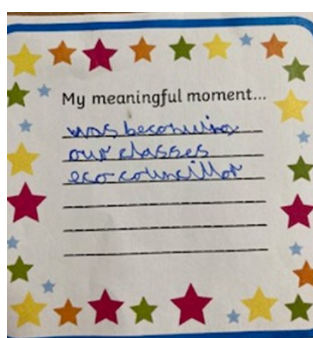 My meaningful moment...
was becoming
our classes
eco councillor